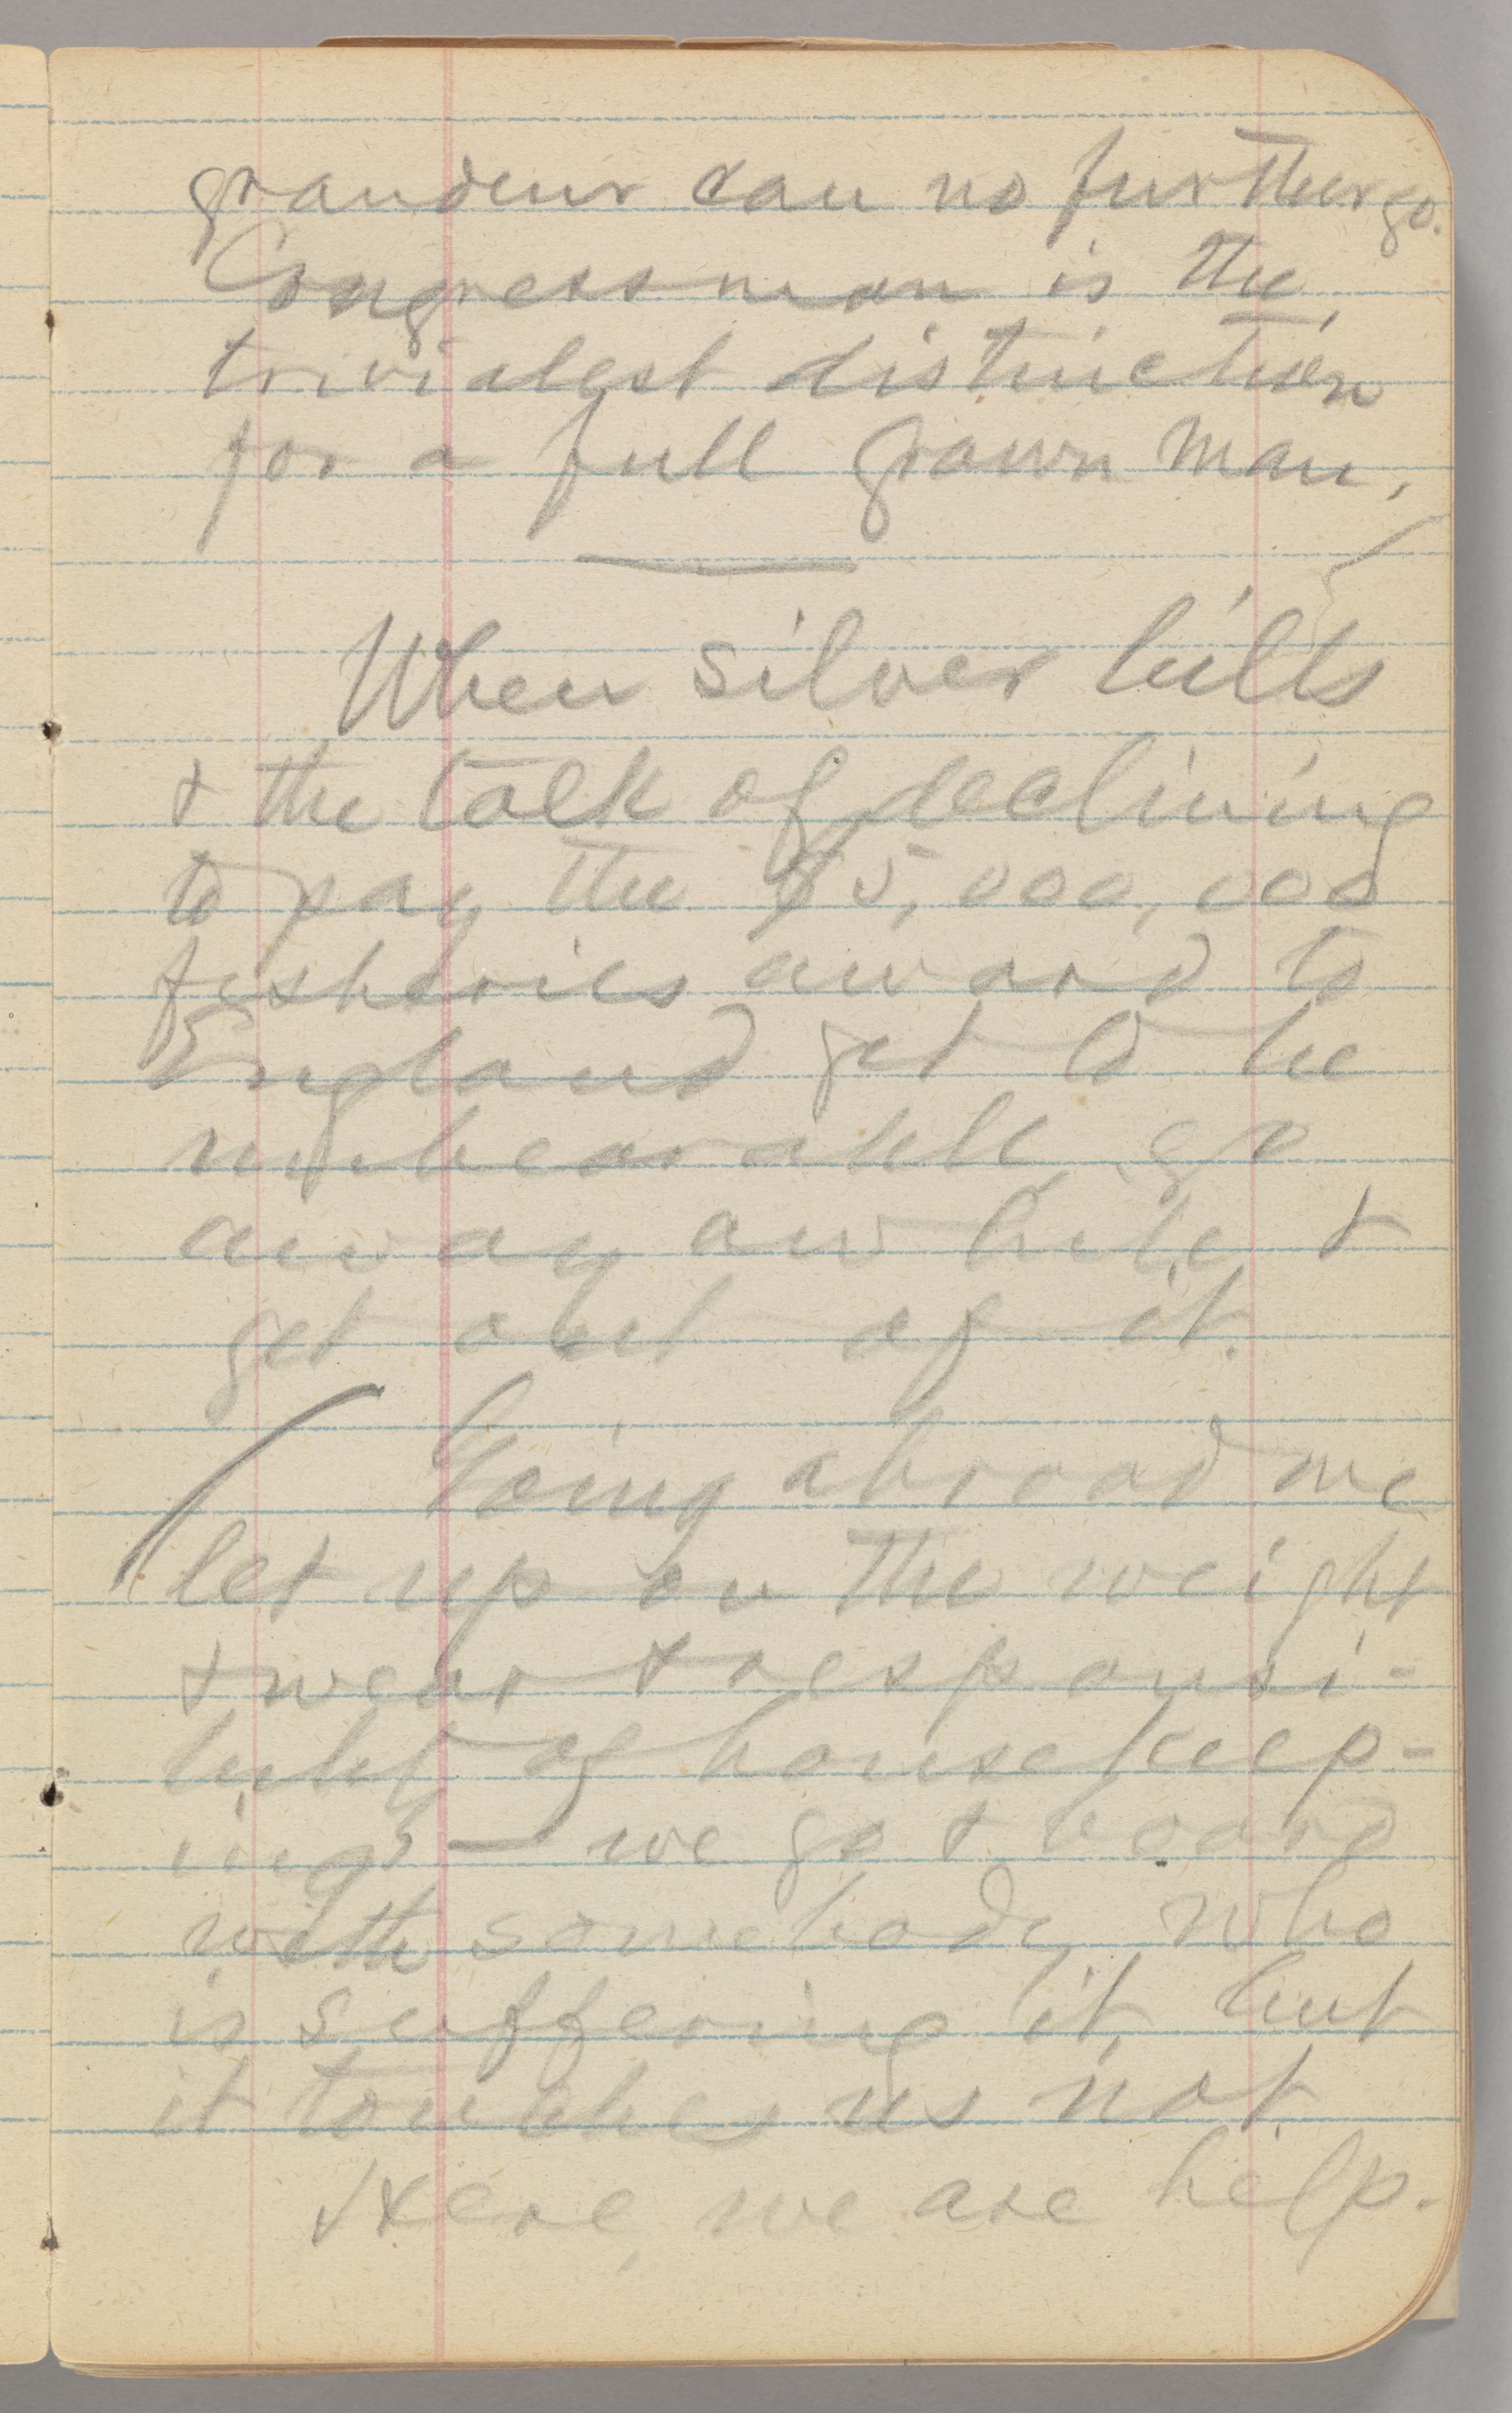 grandeur can no further go.
Congressman is the
trivialest distinction
for a full grown man.
When silver bills
& the talk of declining
to pay the $5,000,000
fisheries award to
England get to be
unbearable, go
away awhile &
get out of it.
Going abroad we
let up on the weight
& wear & responsi-
bility of housekeep-
ing — we go & board
with somebody who
is suffering it, but
it touches us not.
Here, we are help-